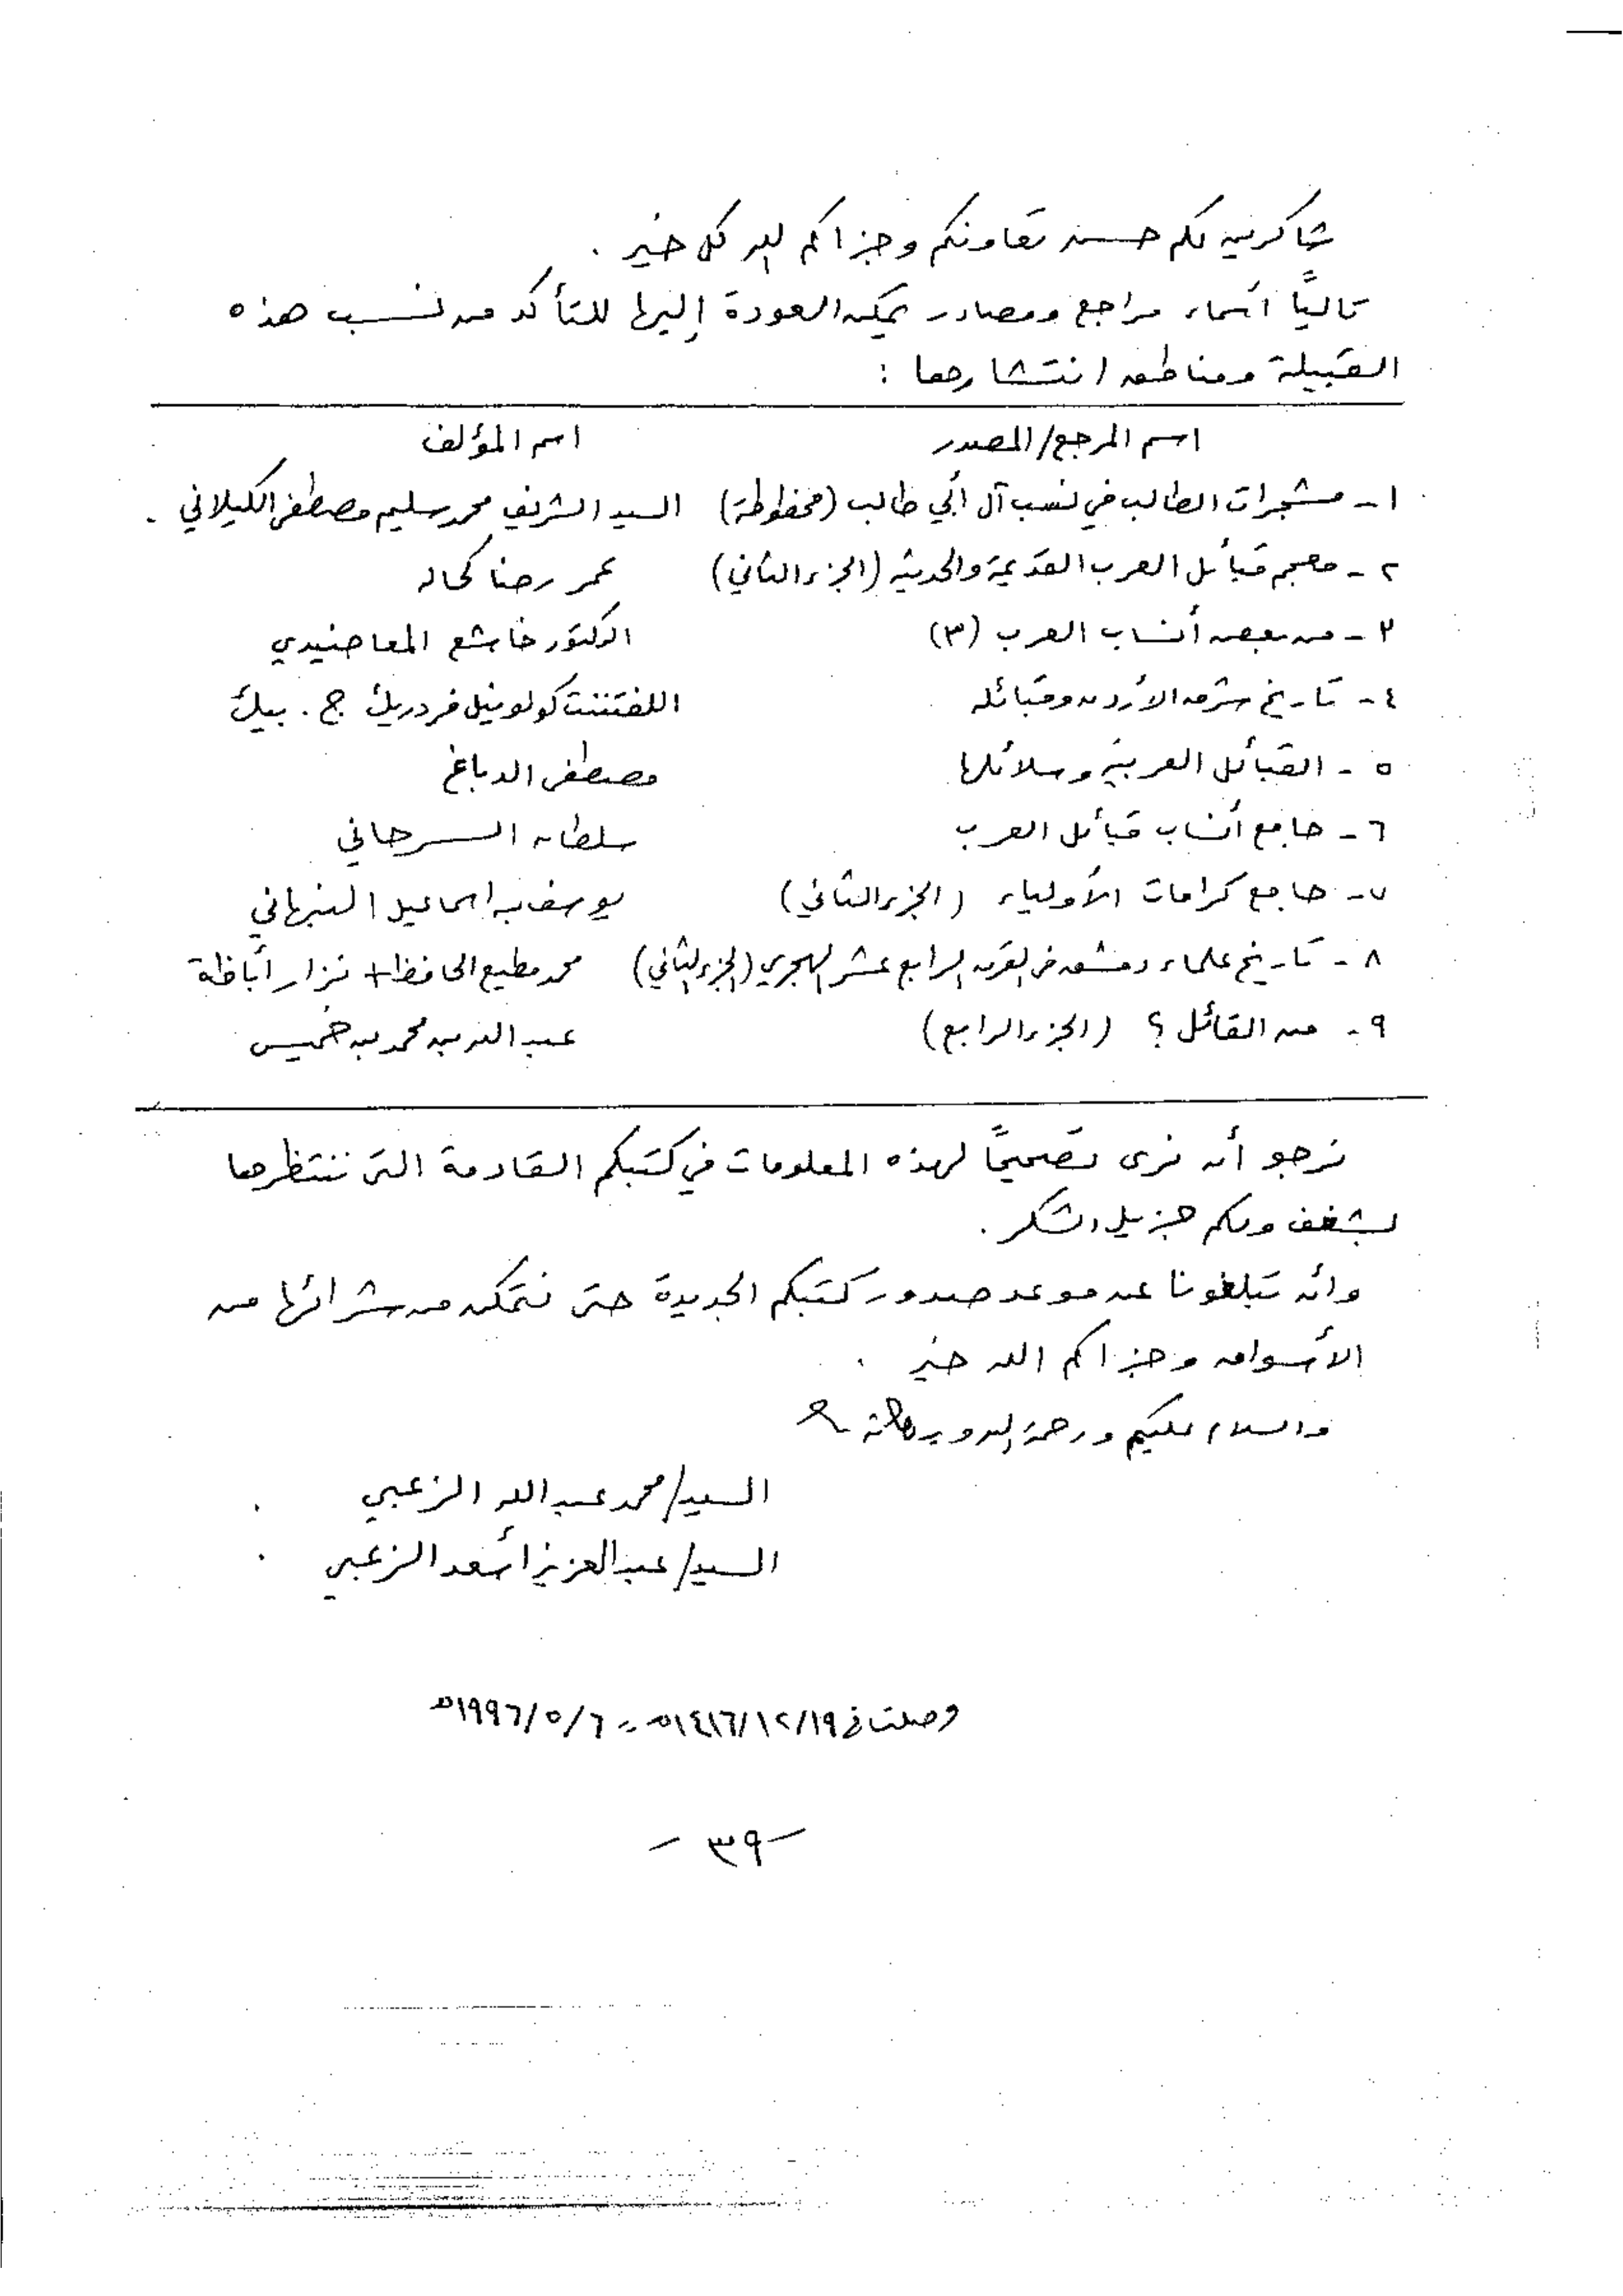 شاكرين لكم حسن تعاونكم وجزاكم الله كل خير .
تاليًا أسماء مراجع ومصادر يمكن العودة إليها للتأكد من نسب هذه
القبيلة ومناطق انتشارها :
اسم المرجع/المصدر اسم المؤلف
١- مشجرات الطالب في نسب آل أبي طالب (مخطوطة) السيد الشريف محمد سليم مصطفى الكيلاني .
٢- معجم قبائل العرب القديمة والحديثة (الجزء الثاني) عمر رضا كحاله
٣- من بعض أنساب العرب (٣) الدكتور خاشع المعاضيدي
٤- تاريخ شرق الأردن وقبائله اللفتننت كولونيل فردريك ج. بيك
٥- القبائل العربية وسلائلها مصطفى الدباغ
٦- جامع أنساب قبائل العرب سلطان السرحاني
٧- جامع كرامات الأولياء (الجزء الثاني) يوسف بن اسماعيل النبهاني
٨- تاريخ علماء دمشق في القرن الرابع عشر الهجري (الجزء الثاني) محمد مطيع الحافظ + نزار أباظة
٩- من القائل ؟ (الجزء الرابع) عبد الله بن محمد بن خميس
نرجو أن نرى تصحيحًا لهذه المعلومات في كتبكم القادمة التي ننتظرها
بشغف ولكم جزيل الشكر .
وأن تبلغونا عن موعد صدور كتبكم الجديدة حتى نتمكن من شرائها من
الأسواق وجزاكم الله خير .
والسلام عليكم ورحمة الله وبركاته
السيد/ محمد عبد الله الزعبي .
السيد/ عبد العزيز أسعد الزعبي .
وصلت في ١٤١٦/١٢/١٩هـ = ١٩٩٦/٥/٦م
- ٣٩ -